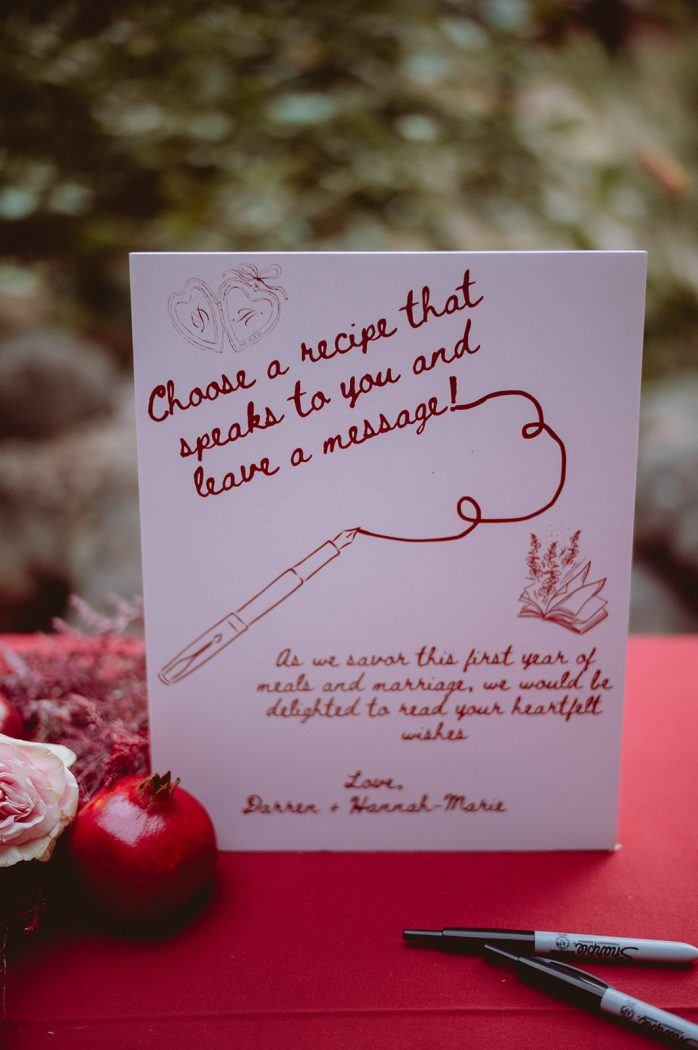 D H
Choose a recipe that
speaks to you and
leave a message!
As we savor this first year of
meals and marriage, we would be
delighted to read your heartfelt
wishes
Love,
Darren + Hannah-Marie
Sharpie
Sharpie